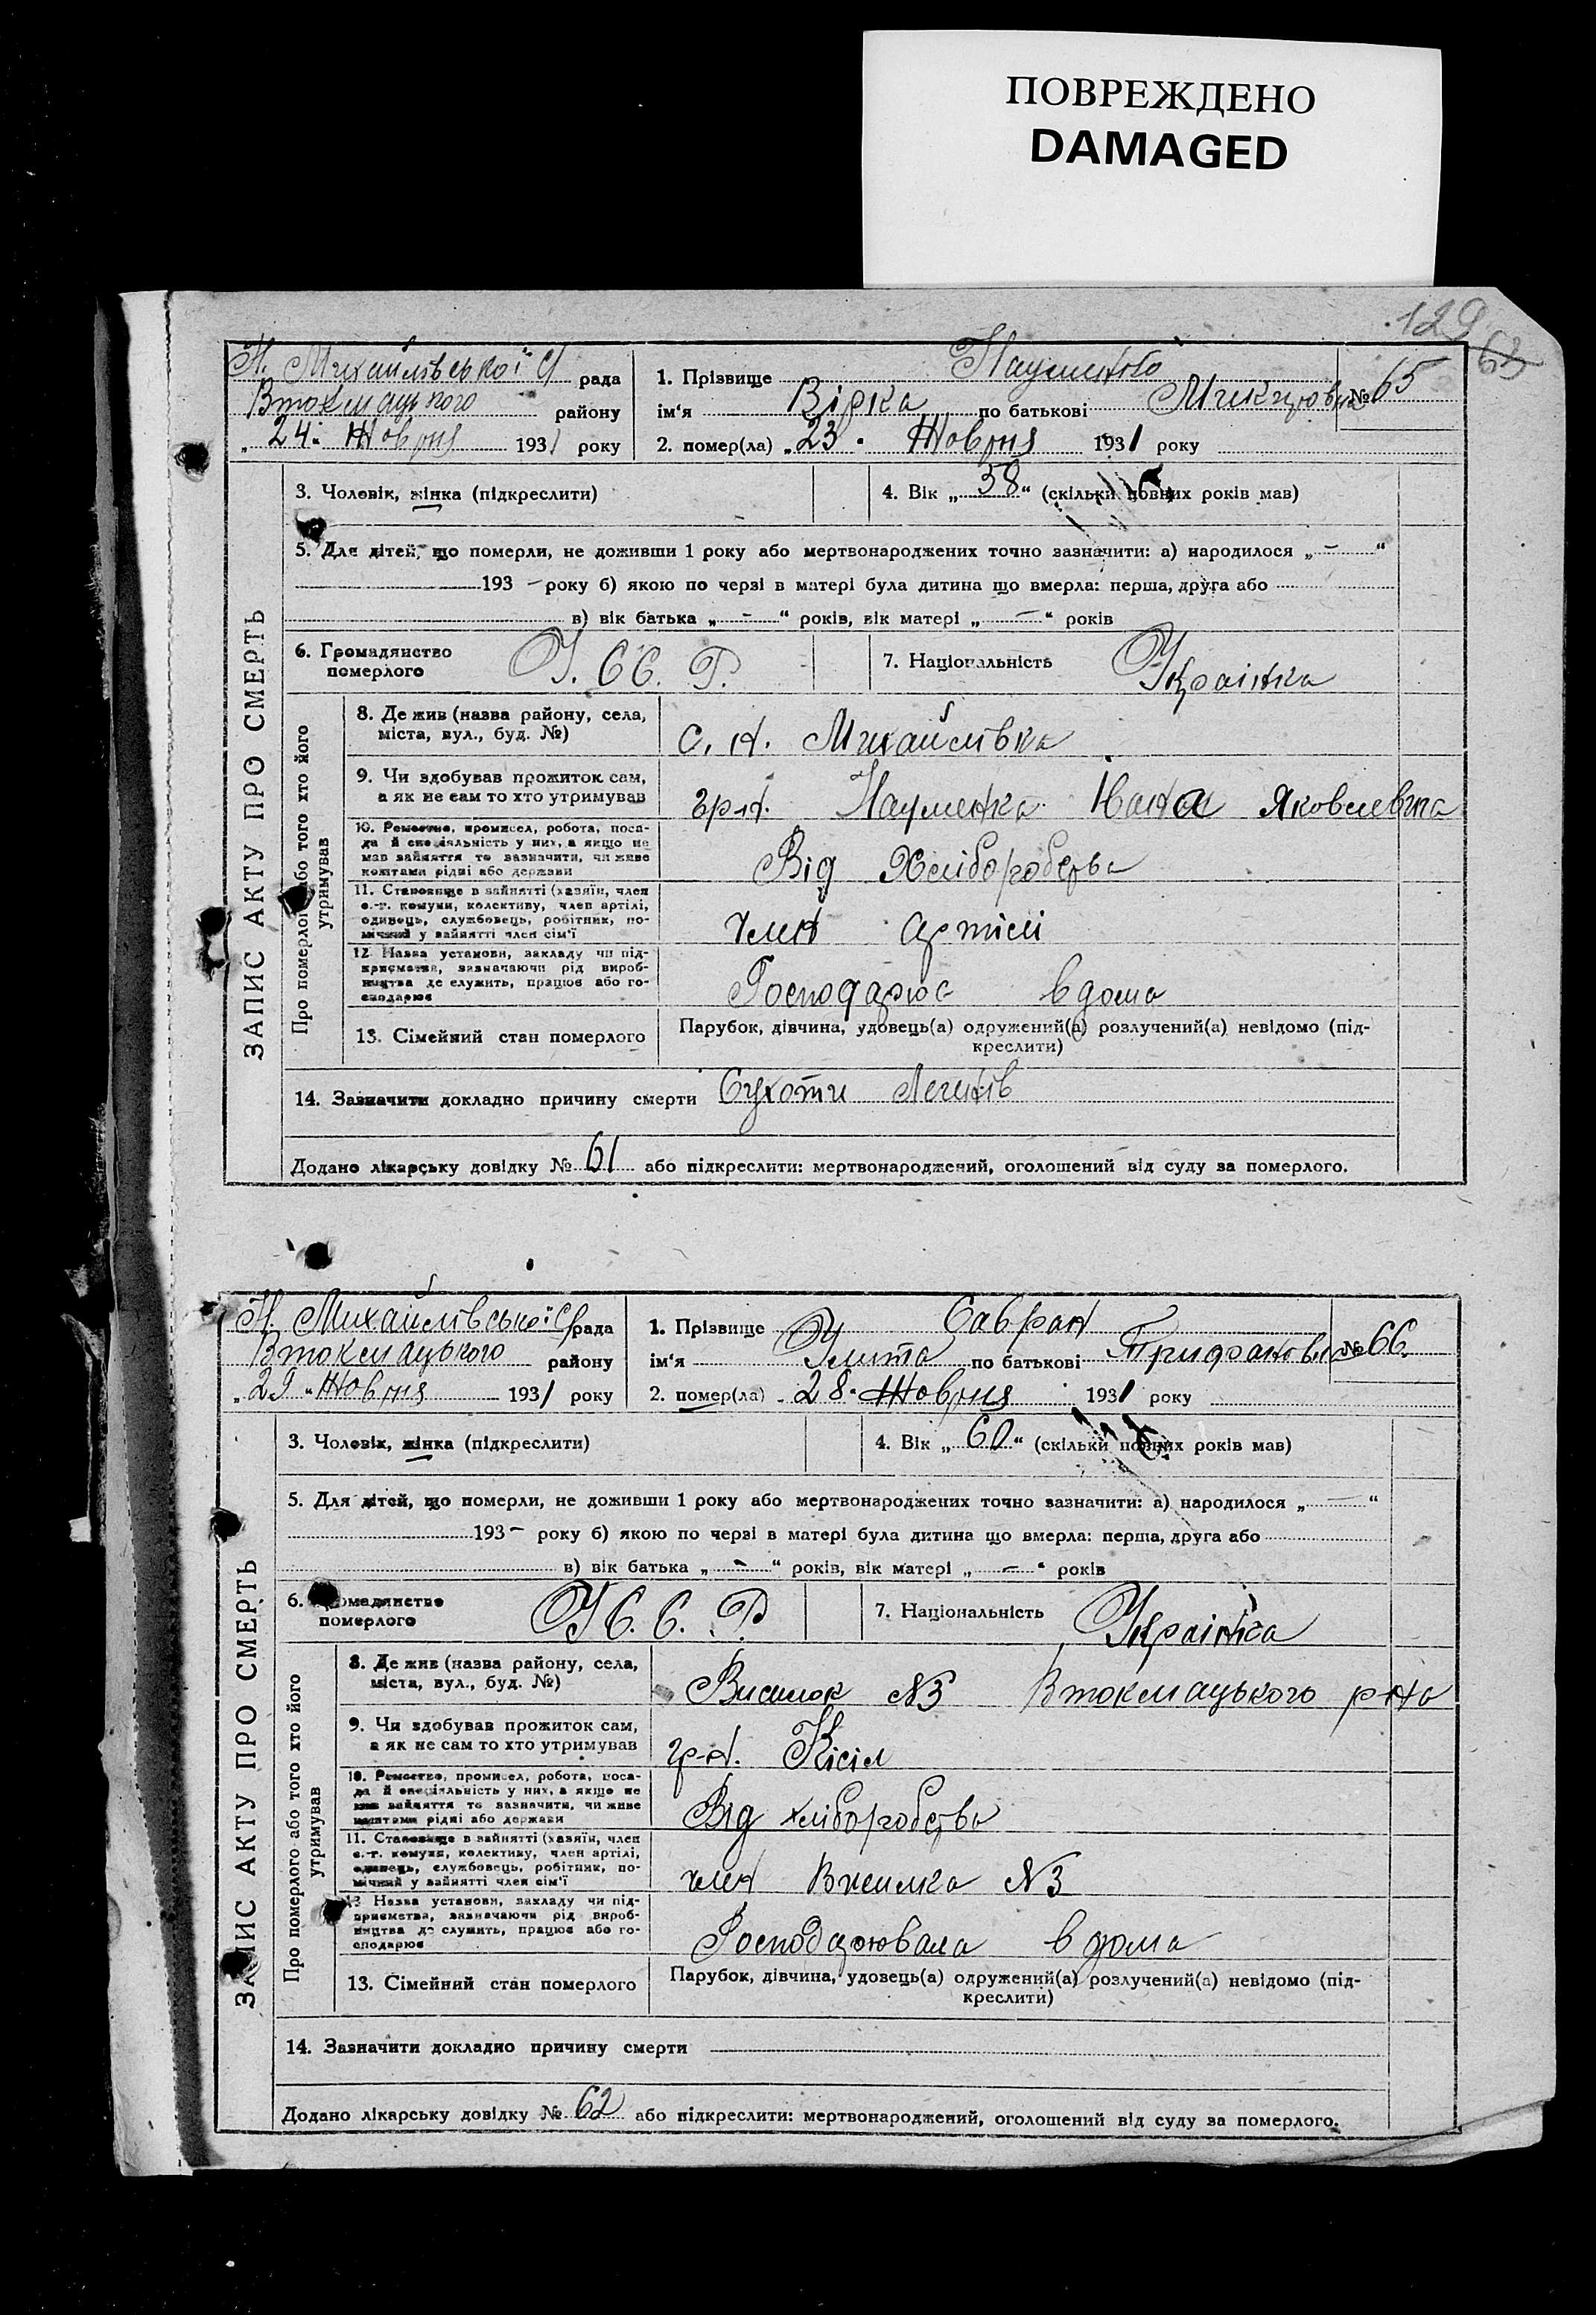 ПОВРЕЖДЕНО
DAMAGED
129
63
Н. Михайлівської С/ рада
Втокмацького району
„24“ Жовтня 1931 року
1. Прізвище Науменко
ім‘я Вірка по батькові
№ 65
2. помер(ла) „23“ Жовтня 1931 року
ЗАПИС АКТУ ПРО СМЕРТЬ
3. Чоловік, жінка (підкреслити)
4. Вік „58“ (скільки повних років мав)
5. Для дітей, що померли, не доживши 1 року або мертвонароджених точно зазначити: а) народилося „ – “
193 – року б) якою по черзі в матері була дитина що вмерла: перша, друга або
в) вік батька „ – “ років, вік матері „ – “ років
6. Громадянство
померлого
У. С С. Р.
7. Національність Українка
Про померлого або того хто його
утримував
8. Де жив (назва району, села,
міста, вул., буд. №)
с. Н. Михайлівка
9. Чи здобував прожиток сам,
а як не сам то хто утримував
гр-н. Науменка Івана Яковлевича
10. Ремество, промисел, робота, поса-
да й спеціяльність у них, а якщо не
мав зайняття то зазначити, чи живе
коштами рідні або держави
Від Хліборобства
11. Становище в зайнятті (хазяїн, член
с.-г. комуни, колективу, член артілі,
одинець, службовець, робітник, по-
мічний у зайнятті член сім‘ї
член артілі
12 Назва установи, закладу чи під-
приємства, зазначаючи рід вироб-
ництва де служить, працює або го-
сподарює
Господарює вдома
13. Сімейний стан померлого
Парубок, дівчина, удовець(а) одружений(а) розлучений(а) невідомо (під-
креслити)
14. Зазначити докладно причину смерти Сухоти Легенів
Додано лікарську довідку № 61 або підкреслити: мертвонароджений, оголошений від суду за померлого.
Н. Михайлівської С/ рада
Втокмацького району
„29“ Жовтня 1931 року
1. Прізвище Савран
ім‘я Улита по батькові Трифановна
№ 66.
2. помер(ла) „28“ Жовтня 1931 року
ЗАПИС АКТУ ПРО СМЕРТЬ
3. Чоловік, жінка (підкреслити)
4. Вік „60“ (скільки повних років мав)
5. Для дітей, що померли, не доживши 1 року або мертвонароджених точно зазначити: а) народилося „ – “
193 – року б) якою по черзі в матері була дитина що вмерла: перша, друга або
в) вік батька „ – “ років, вік матері „ – “ років
6. Громадянство
померлого
У С. С. Р
7. Національність Українка
Про померлого або того хто його
утримував
8. Де жив (назва району, села,
міста, вул., буд. №)
Висилок №3 Втокмацького р-на
9. Чи здобував прожиток сам,
а як не сам то хто утримував
гр-н. Кісіл
10. Ремество, промисел, робота, поса-
да й спеціяльність у них, а якщо не
мав зайняття то зазначити, чи живе
коштами рідні або держави
Від хліборобства
11. Становище в зайнятті (хазяїн, член
с.-г. комуни, колективу, член артілі,
одинець, службовець, робітник, по-
мічний у зайнятті член сім‘ї
член Висилка №3
12 Назва установи, закладу чи під-
приємства, зазначаючи рід вироб-
ництва де служить, працює або го-
сподарює
Господарювала вдома
13. Сімейний стан померлого
Парубок, дівчина, удовець(а) одружений(а) розлучений(а) невідомо (під-
креслити)
14. Зазначити докладно причину смерти
Додано лікарську довідку № 62 або підкреслити: мертвонароджений, оголошений від суду за померлого.